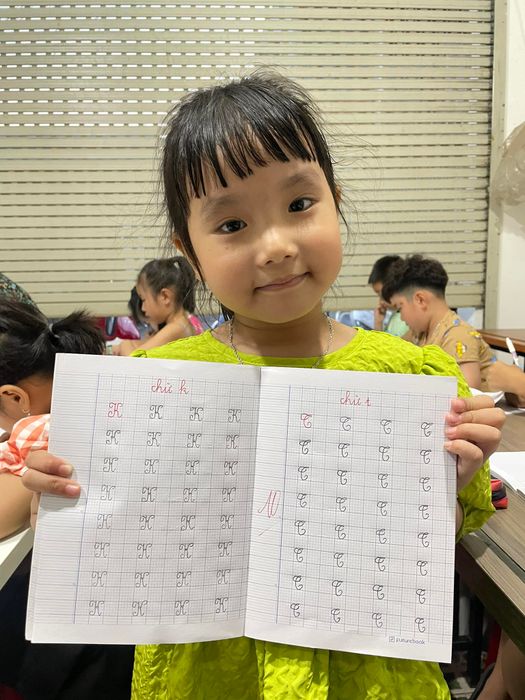 chữ k
K K K K
K K K K
K K K K
K K K K
K K K K
K K K K
K K K K
K K K K
chữ t
T T T T
T T T T
T T T T
T T T T
T T T T
T T T T
T T T T
T T T T